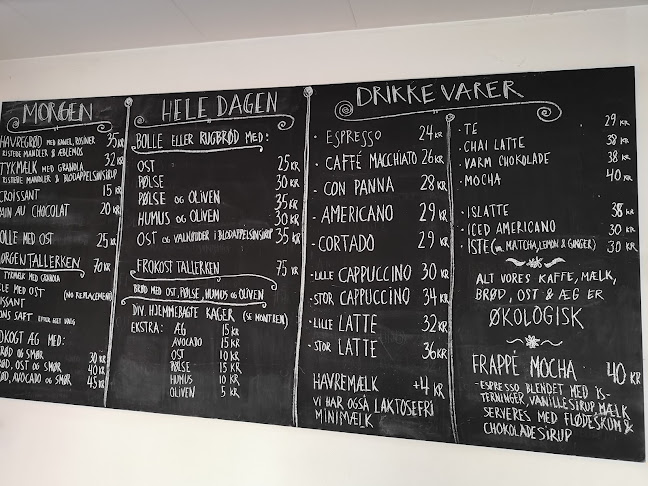 MORGEN
HAVREGRØD MED KANEL, ROSINER 35 KR
RISTEDE MANDLER & ÆBLEMOS
TYKMÆLK MED GRANOLA 32 KR
RISTEDE MANDLER & BLODAPPELSINSIRUP
CROISSANT 15 KR
AIN AU CHOCOLAT 20 KR
OLLE MED OST 25 KR
ORGENTALLERKEN 70 KR
TYKMÆLK MED GRANOLA
LE MED OST (NO REPLACEMENT)
ISSANT
ONS SAFT EFTER EGET VALG
DKOGT ÆG MED:
RØD OG SMØR 30 KR
ØD, OST OG SMØR 40 KR
ØD, AVOCADO OG SMØR 45 KR
HELE DAGEN
BOLLE ELLER RUGBRØD MED:
OST 25 KR
PØLSE 30 KR
PØLSE OG OLIVEN 35 KR
HUMUS OG OLIVEN 30 KR
OST OG VALNØDDER I BLODAPPELSINSIRUP 35 KR
FROKOST TALLERKEN 75 KR
BRØD MED OST, PØLSE, HUMUS OG OLIVEN
DIV. HJEMMEBAGTE KAGER (SE MONTREN)
EKSTRA: ÆG 15 KR
AVOCADO 15 KR
OST 10 KR
PØLSE 15 KR
HUMUS 10 KR
OLIVEN 5 KR
DRIKKEVARER
· ESPRESSO 24 KR
· CAFFÉ MACCHIATO 26 KR
· CON PANNA 28 KR
· AMERICANO 29 KR
· CORTADO 29 KR
· LILLE CAPPUCCINO 30 KR
· STOR CAPPUCCINO 34 KR
· LILLE LATTE 32 KR
· STOR LATTE 36 KR
HAVREMÆLK +4 KR
VI HAR OGSÅ LAKTOSEFRI
MINIMÆLK
· TE 29 KR
· CHAI LATTE 38 KR
· VARM CHOKOLADE 38 KR
· MOCHA 40 KR
· ISLATTE 38 KR
· ICED AMERICANO 30 KR
· ISTE (M. MATCHA, LEMON & GINGER) 30 KR
ALT VORES KAFFE, MÆLK,
BRØD, OST & ÆG ER
ØKOLOGISK
FRAPPÈ MOCHA 40 KR
- ESPRESSO BLENDET MED IS-
TERNINGER, VANILLESIRUP, MÆLK
SERVERES MED FLØDESKUM &
CHOKOLADESIRUP